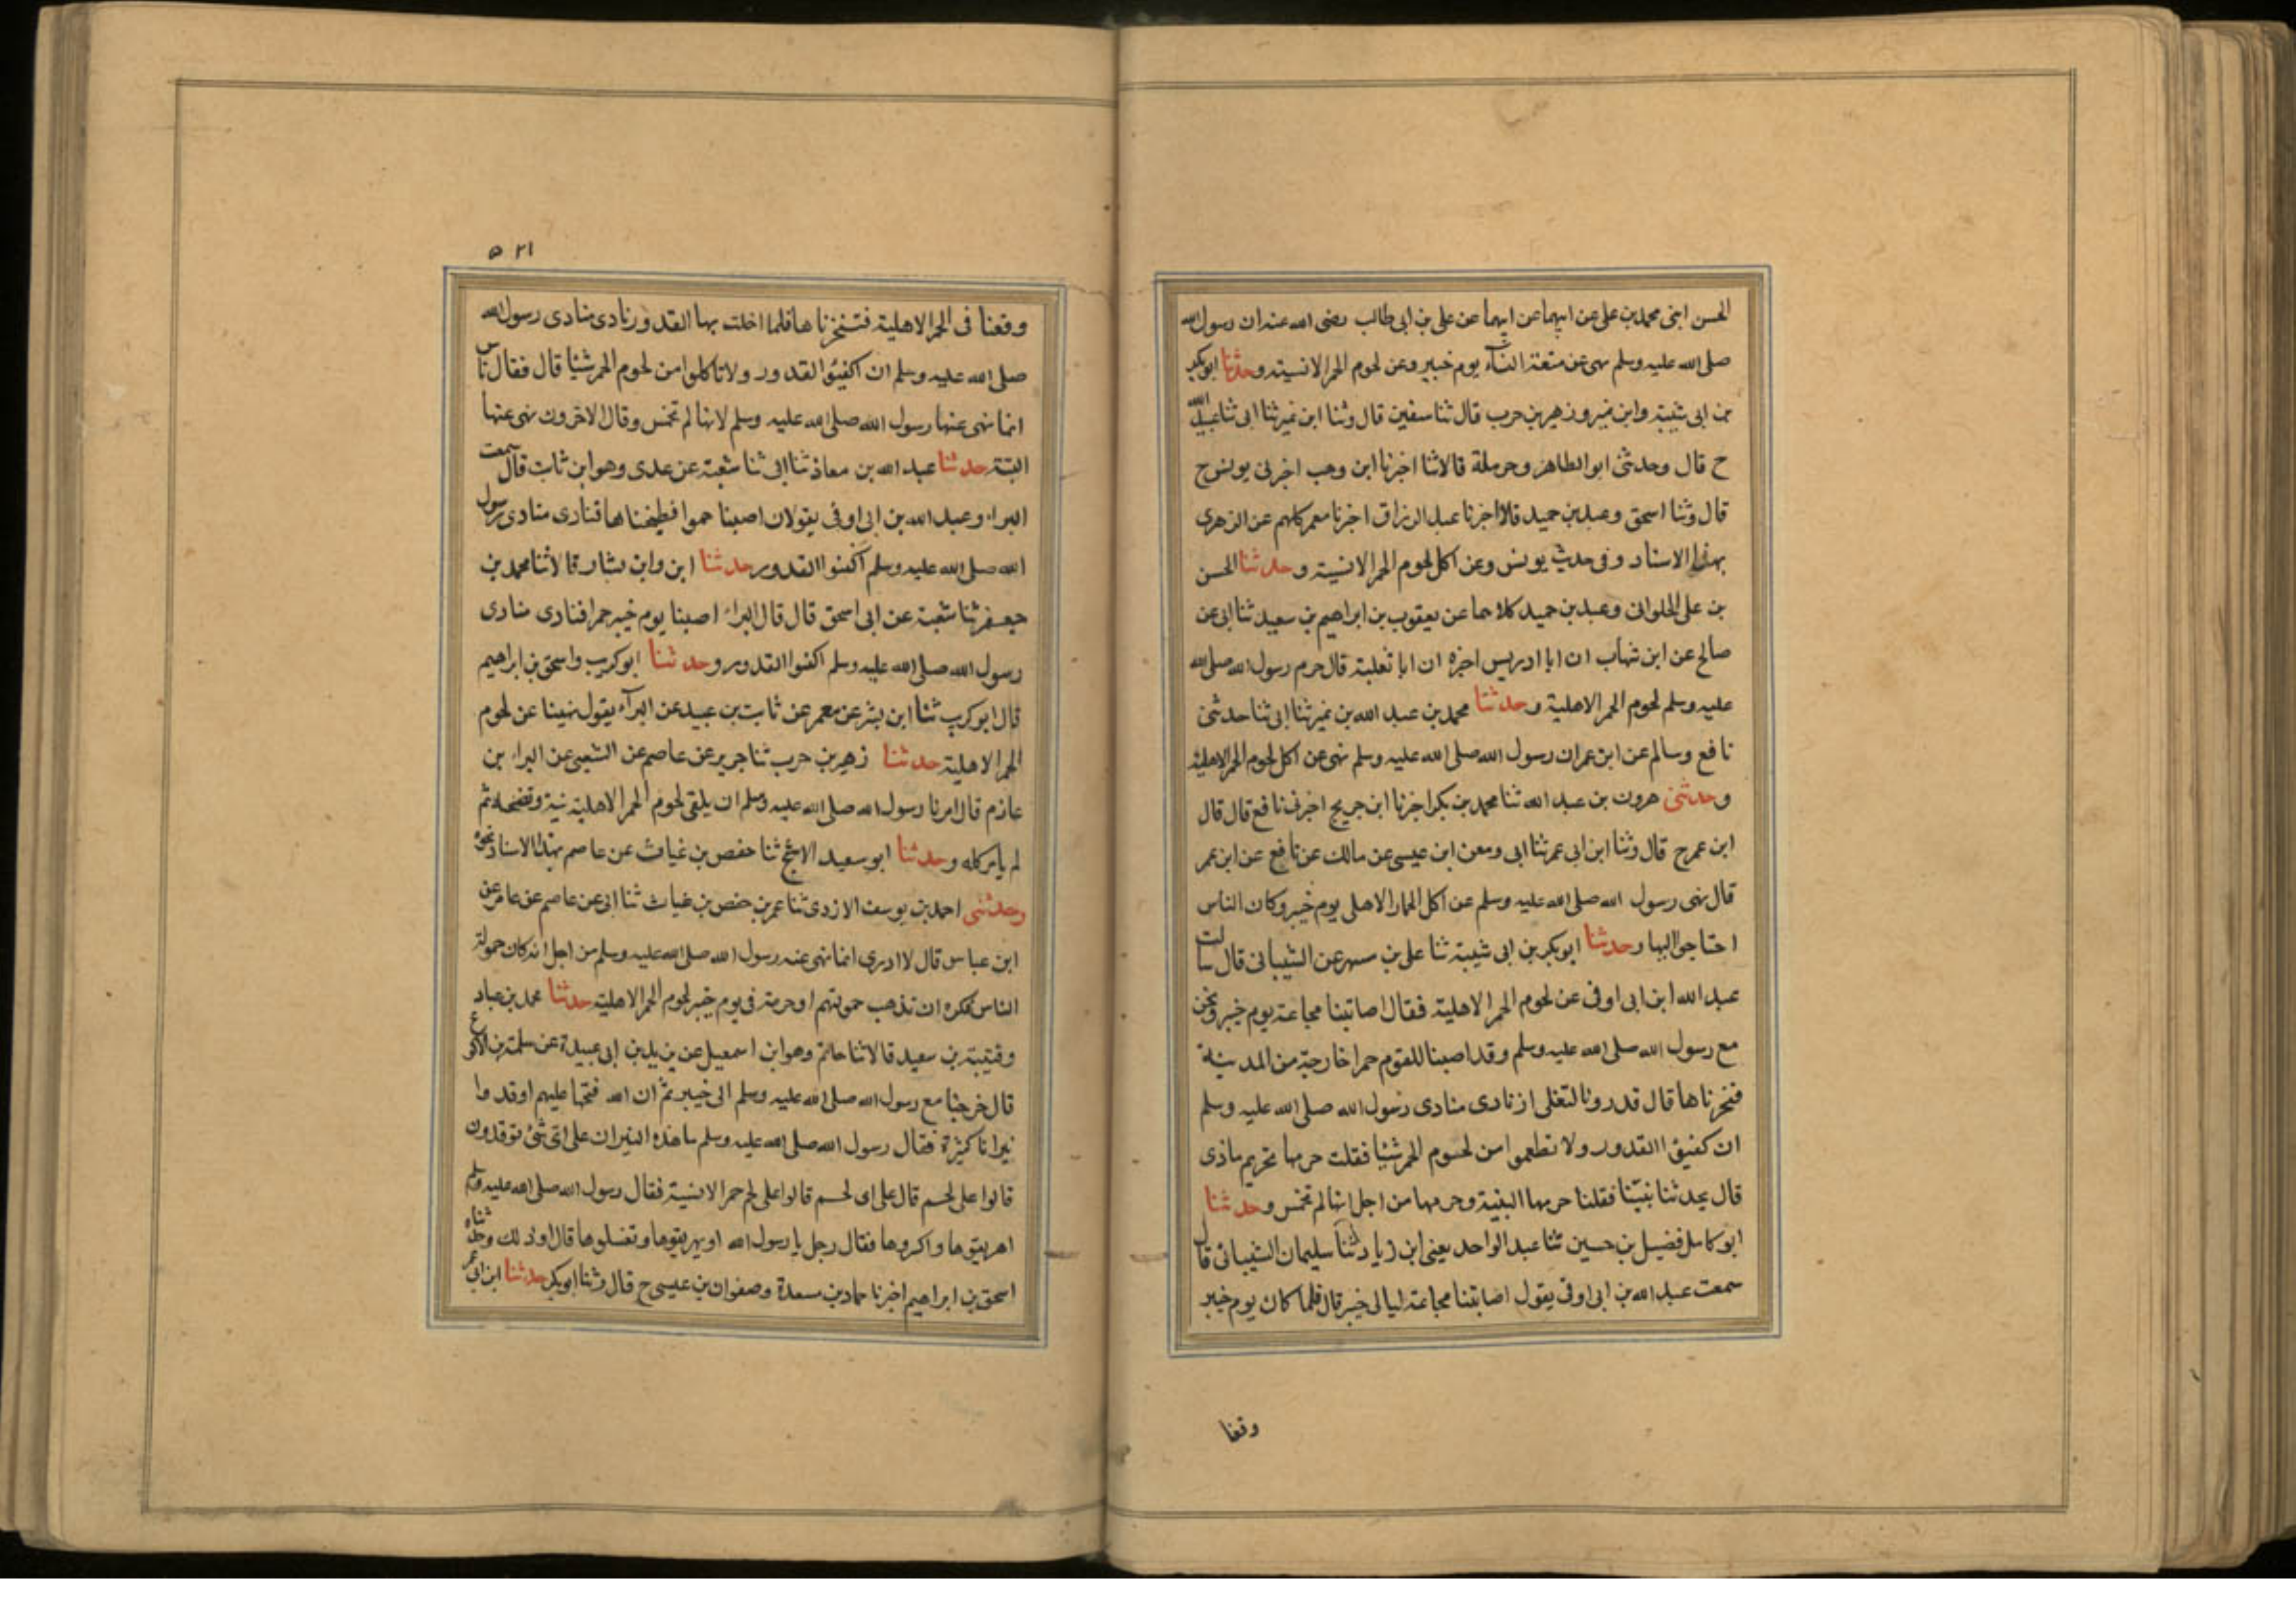 الحسن ابنى محمد بن على عن ابيهما عن ابيهما عن على بن ابى طالب رضى الله عنه ان رسول الله
صلى الله عليه وسلم نهى عن متعة النسآء يوم خيبر وعن لحوم الحمر الانسية وحدثنا ابو بكر
بن ابى شيبة وابن نمير وزهير بن حرب قال ثنا سفين قال وثنا ابن نمير ثنا ابى ثنا عبيد الله
ح قال وحدثنى ابو الطاهر وحرملة قالا ثنا اخبرنا ابن وهب اخبرنى يونس ح
قال وثنا اسحق وعبد بن حميد قالا اخبرنا عبد الرزاق اخبرنا معمر كلهم عن الزهرى
بهذا الاسناد وفى حديث يونس وعن اكل لحوم الحمر الانسية وحدثنا الحسن
بن على الحلوانى وعبد بن حميد كلاهما عن يعقوب بن ابراهيم بن سعيد ثنا ابى عن
صالح عن ابن شهاب ان ابا ادريس اخبره ان ابا ثعلبة قال حرم رسول الله صلى الله
عليه وسلم لحوم الحمر الاهلية وحدثنا محمد بن عبد الله بن نمير ثنا ابى ثنا حدثنى
نافع وسالم عن ابن عمر ان رسول الله صلى الله عليه وسلم نهى عن اكل لحوم الحمر الاهلية
وحدثنى هرون بن عبد الله ثنا محمد بن بكر اخبرنا ابن جريج اخبرنى نافع قال قال
ابن عمر ح قال وثنا ابن ابى عمر ثنا ابى ومعن ابن عيسى عن مالك عن نافع عن ابن عمر
قال نهى رسول الله صلى الله عليه وسلم عن اكل الحمار الاهلى يوم خيبر وكان الناس
احتاجوا اليها وحدثنا ابو بكر بن ابى شيبة ثنا على بن مسهر عن الشيبانى قال سالت
عبد الله ابن ابى اوفى عن لحوم الحمر الاهلية فقال اصاتبنا مجاعة يوم خيبر ونحن
مع رسول الله صلى الله عليه وسلم وقد اصبنا للقوم حمرا خارجة من المدينة
فنحرناها قال قدرونا لتغلى اذ نادى منادى رسول الله صلى الله عليه وسلم
ان كفيؤا القدور ولا تطعموا من لحوم الحمر شيا فقلت حرمها تحريم ماذى
قال يحدثنا نبيّنا فقلنا حرمها البتية وحرمها من اجل انها لم تخمس وحدثنا
ابو كامل فضيل بن حسين ثنا عبد الواحد يعنى ابن زياد ثنا سليمان الشيبانى قال
سمعت عبد الله بن ابى اوفى يقول اصابتنا مجاعة ليالى خيبر قال فلما كان يوم خيبر
وقعنا
٥٢١
وقعنا فى الحمر الاهلية فتنحرناها فلما اخلت بها القدور نادى منادى رسول الله
صلى الله عليه وسلم ان اكفيؤا القدور ولا تاكلوا من لحوم الحمر شيا قال فقال ناس
انما نهى عنها رسول الله صلى الله عليه وسلم لانها لم تخمس وقال الاخرون نهى عنها
البتة حدثنا عبد الله بن معاذ ثنا ابى ثنا شعبة عن عدى وهو ابن ثابت قال سمعت
البراء وعبد الله بن ابى اوفى يقولان اصبنا حموا فطبخناها فنادى منادى رسول
الله صلى الله عليه وسلم اكفئوا القدور حدثنا ابن وابن بشار قالا ثنا محمد بن
جعفر ثنا شعبة عن ابى اسحق قال قال البراء اصبنا يوم خيبر حمرا فنادى منادى
رسول الله صلى الله عليه وسلم اكفوا القدور وحدثنا ابو كريب واسحق بن ابراهيم
قال ابو كريب ثنا ابن بشر عن معمر عن ثابت بن عبيد عن البرآء يقول نهينا عن لحوم
الحمر الاهلية حدثنا زهير بن حرب ثنا جرير عن عاصم عن الشعبى عن البراء بن
عازم قال امرنا رسول الله صلى الله عليه وسلم ان يلقى لحوم الحمر الاهلية نية ونضجه ثم
لم يامر كله وحدثنا ابو سعيد الاشج ثنا حفص بن غياث عن عاصم بهذا الاسناد نحوه
وحدثنى احمد بن يوسف الازدى ثنا عمر بن حفص بن غياث ثنا ابى عن عاصم عن عامر عن
ابن عباس قال لا ادرى انما نهى عنه رسول الله صلى الله عليه وسلم من اجل انه كان حمولة
الناس فكره ان تذهب حمولتهم او حرمة فى يوم خيبر لحوم الحمر الاهلية حدثنا محمد بن عباد
وقتيبة بن سعيد قالا ثنا حاتم وهو ابن اسمعيل عن يزيد بن ابى عبيدة عن سلمة بن الاكوع
قال خرجنا مع رسول الله صلى الله عليه وسلم الى خيبر ثم ان الله فتحها عليهم اوقدوا
نيرانا كثيرة فقال رسول الله صلى الله عليه وسلم ما هذه النيران على اى شئ توقدون
قالوا على لحم قال على اى لحم قالوا على لحم حمر الانسية فقال رسول الله صلى الله عليه وسلم
اهريقوها واكروها فقال رجل يا رسول الله او يهريقوها وتغسلوها قال او ذلك وحدثناه
اسحق بن ابراهيم اخبرنا حماد بن مسعدة وصفوان بن عيسى ح قال وثنا ابو بكر حدثنا ابن ابى عمر